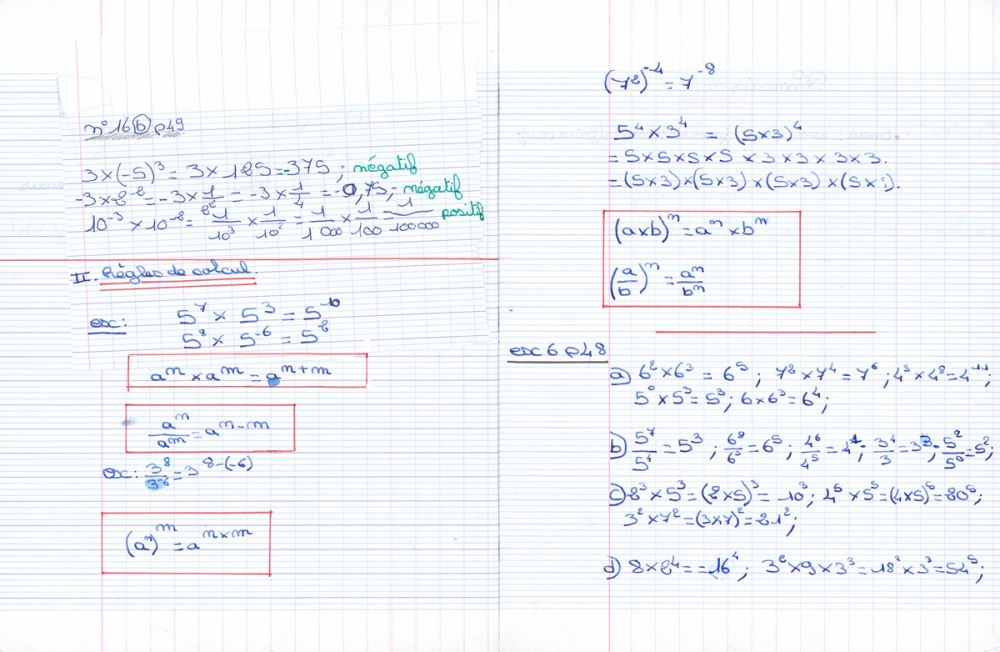 n° 16 b p49
3 × (-5)³ = 3 × 125 = -375 ; négatif
-3 × 2⁻² = -3 × 1/2² = -3 × 1/4 = -0,75 ; négatif
10⁻³ × 10⁻² = 1/10³ × 1/10² = 1/1 000 × 1/100 = 1/100000 positif
II. Règles de calcul.
ex : 5⁷ × 5³ = 5¹⁰
5⁸ × 5⁻⁶ = 5²
aⁿ × aᵐ = aⁿ⁺ᵐ
aⁿ/aᵐ = aⁿ⁻ᵐ
ex : 3⁸/3⁻⁶ = 3⁸⁻⁽⁻⁶⁾
(aⁿ)ᵐ = aⁿˣᵐ
(7²)⁻⁴ = 7⁻⁸
5⁴ × 3⁴ = (5×3)⁴
= 5 × 5 × 5 × 5 × 3 × 3 × 3 × 3.
= (5×3) × (5×3) × (5×3) × (5×3).
(a×b)ⁿ = aⁿ × bⁿ
(a/b)ⁿ = aⁿ/bⁿ
ex 6 p48
a) 6² × 6³ = 6⁵ ; 7² × 7⁴ = 7⁶ ; 4³ × 4⁸ = 4¹¹ ;
5⁰ × 5³ = 5³ ; 6 × 6³ = 6⁴ ;
b) 5⁷/5⁴ = 5³ ; 6⁸/6³ = 6⁵ ; 4⁶/4⁵ = 4¹ ; 3⁴/3 = 3³ ; 5²/5⁰ = 5² ;
c) 2³ × 5³ = (2×5)³ = 10³ ; 4⁵ × 5⁵ = (4×5)⁵ = 20⁵ ;
3² × 7² = (3×7)² = 21² ;
d) 8 × 2⁴ = 16⁴ ; 3² × 9 × 3³ = 18² × 3³ = 54⁵ ;